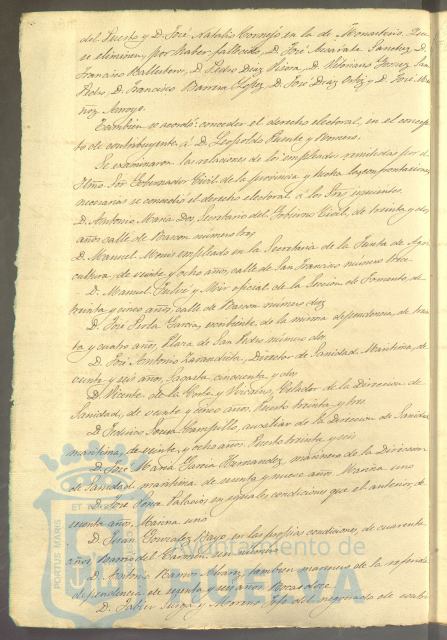 del Puerto y D. José Natalio Cornejo en la de Monasterio. Que
se eliminen, por haber fallecido, D. José Alcarata Sanchez, D.
Francisco Ballestero, D. Pedro Diaz D. Gomez San
Pedro, D. Francisco Barrera Lopez, D. José Diaz Ortiz y D. José Mu
ñoz Arroyo.
Tambien se acordó conceder el derecho electoral, en el concep
to de contribuyente á D. Leopoldo Puente y Romero.
Se examinaron las relaciones de los empleados remitidas por el
Iltmo Sor Gobernador Civil de la provincia y hecha las confrontaciones
necesarias se concedió el derecho electoral á los Sres siguientes
D. Antonio Maria Dos Secretario del Gobierno Civil, de treinta y dos
años calle de Rascon número tres
D. Manuel empleado en la Secretaria de la Junta de Agri
cultura, de veinte y ocho años, calle de San Francisco número trece
D. Manuel y Mir oficial de la Seccion de Fomento, de
treinta y cinco años, calle de Rascon número diez
D. José Garcia, escribiente de la misma dependencia, de trein
ta y cuatro años, Plaza de San Pedro número dos
D. José Antonio Director de Sanidad Maritima, de
cuenta y seis años, Sagasta cincuenta y dos
D. Vicente de la Corte y Celador de la Direccion de
Sanidad, de veinte y cinco años, Puerto treinta y tres
D. Federico Soria Campillo, auxiliar de la Direccion de Sanidad
maritima, de veinte y ocho años, Puerto treinta y seis
D. José Maria Garcia Hernandez, marinero de la Direccion
de Sanidad maritima de cuenta y nueve años, Marina uno
D. José Peña Palacios en iguales condiciones que el anterior, de
sesenta años, Marina uno
D. Juan Gonzalez Rayo, en las propias condiciones, de cuarenta
años, barrio del Carmen, sin número
D. Antonio Ramos Alvarez, tambien marinero de la referida
dependencia, de sesenta y seis años, Bocas doce
D. Javier y Moreno, Jefe del negociado de
PORTUS MARIS
ET TE
Ayuntamiento de
HUELVA